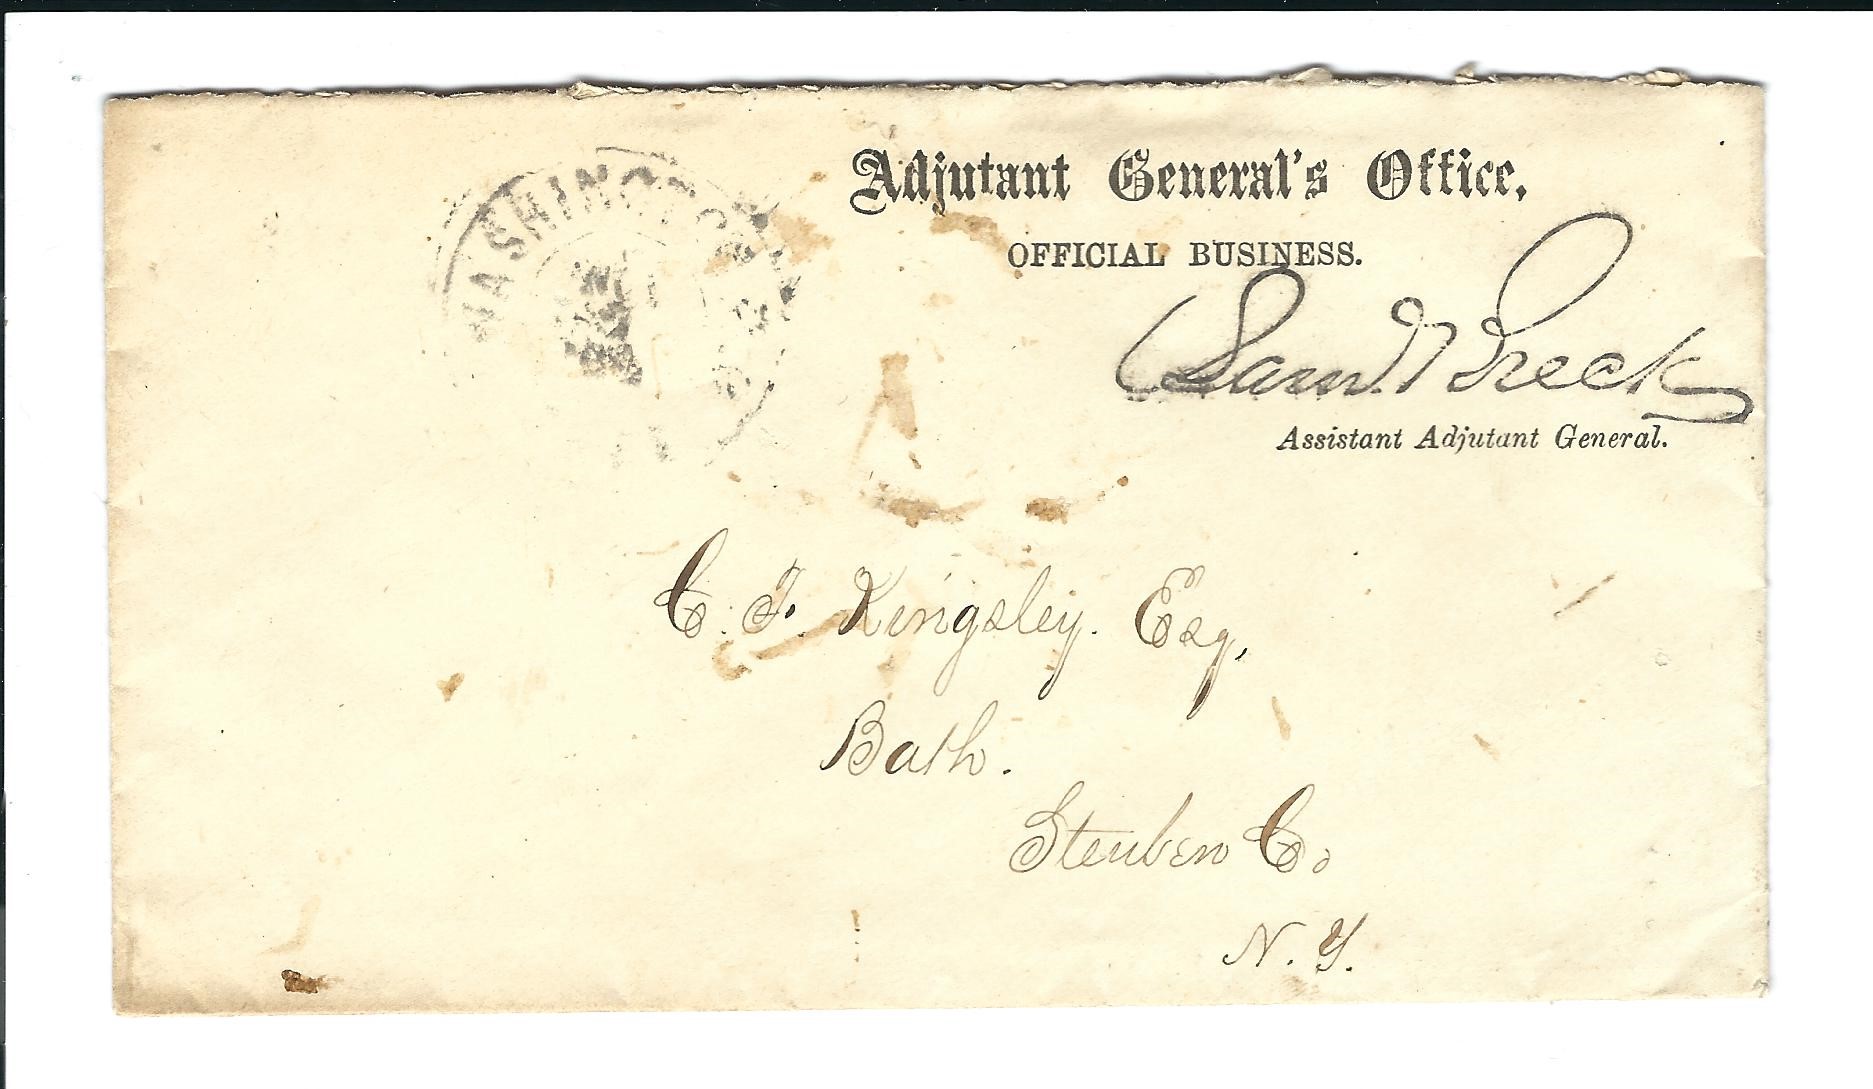 WASHINGTON
Adjutant General's Office,
OFFICIAL BUSINESS.
Sam Breck
Assistant Adjutant General.
C. F. Kingsley. Esq,
Bath.
Steuben Co.
N. Y.